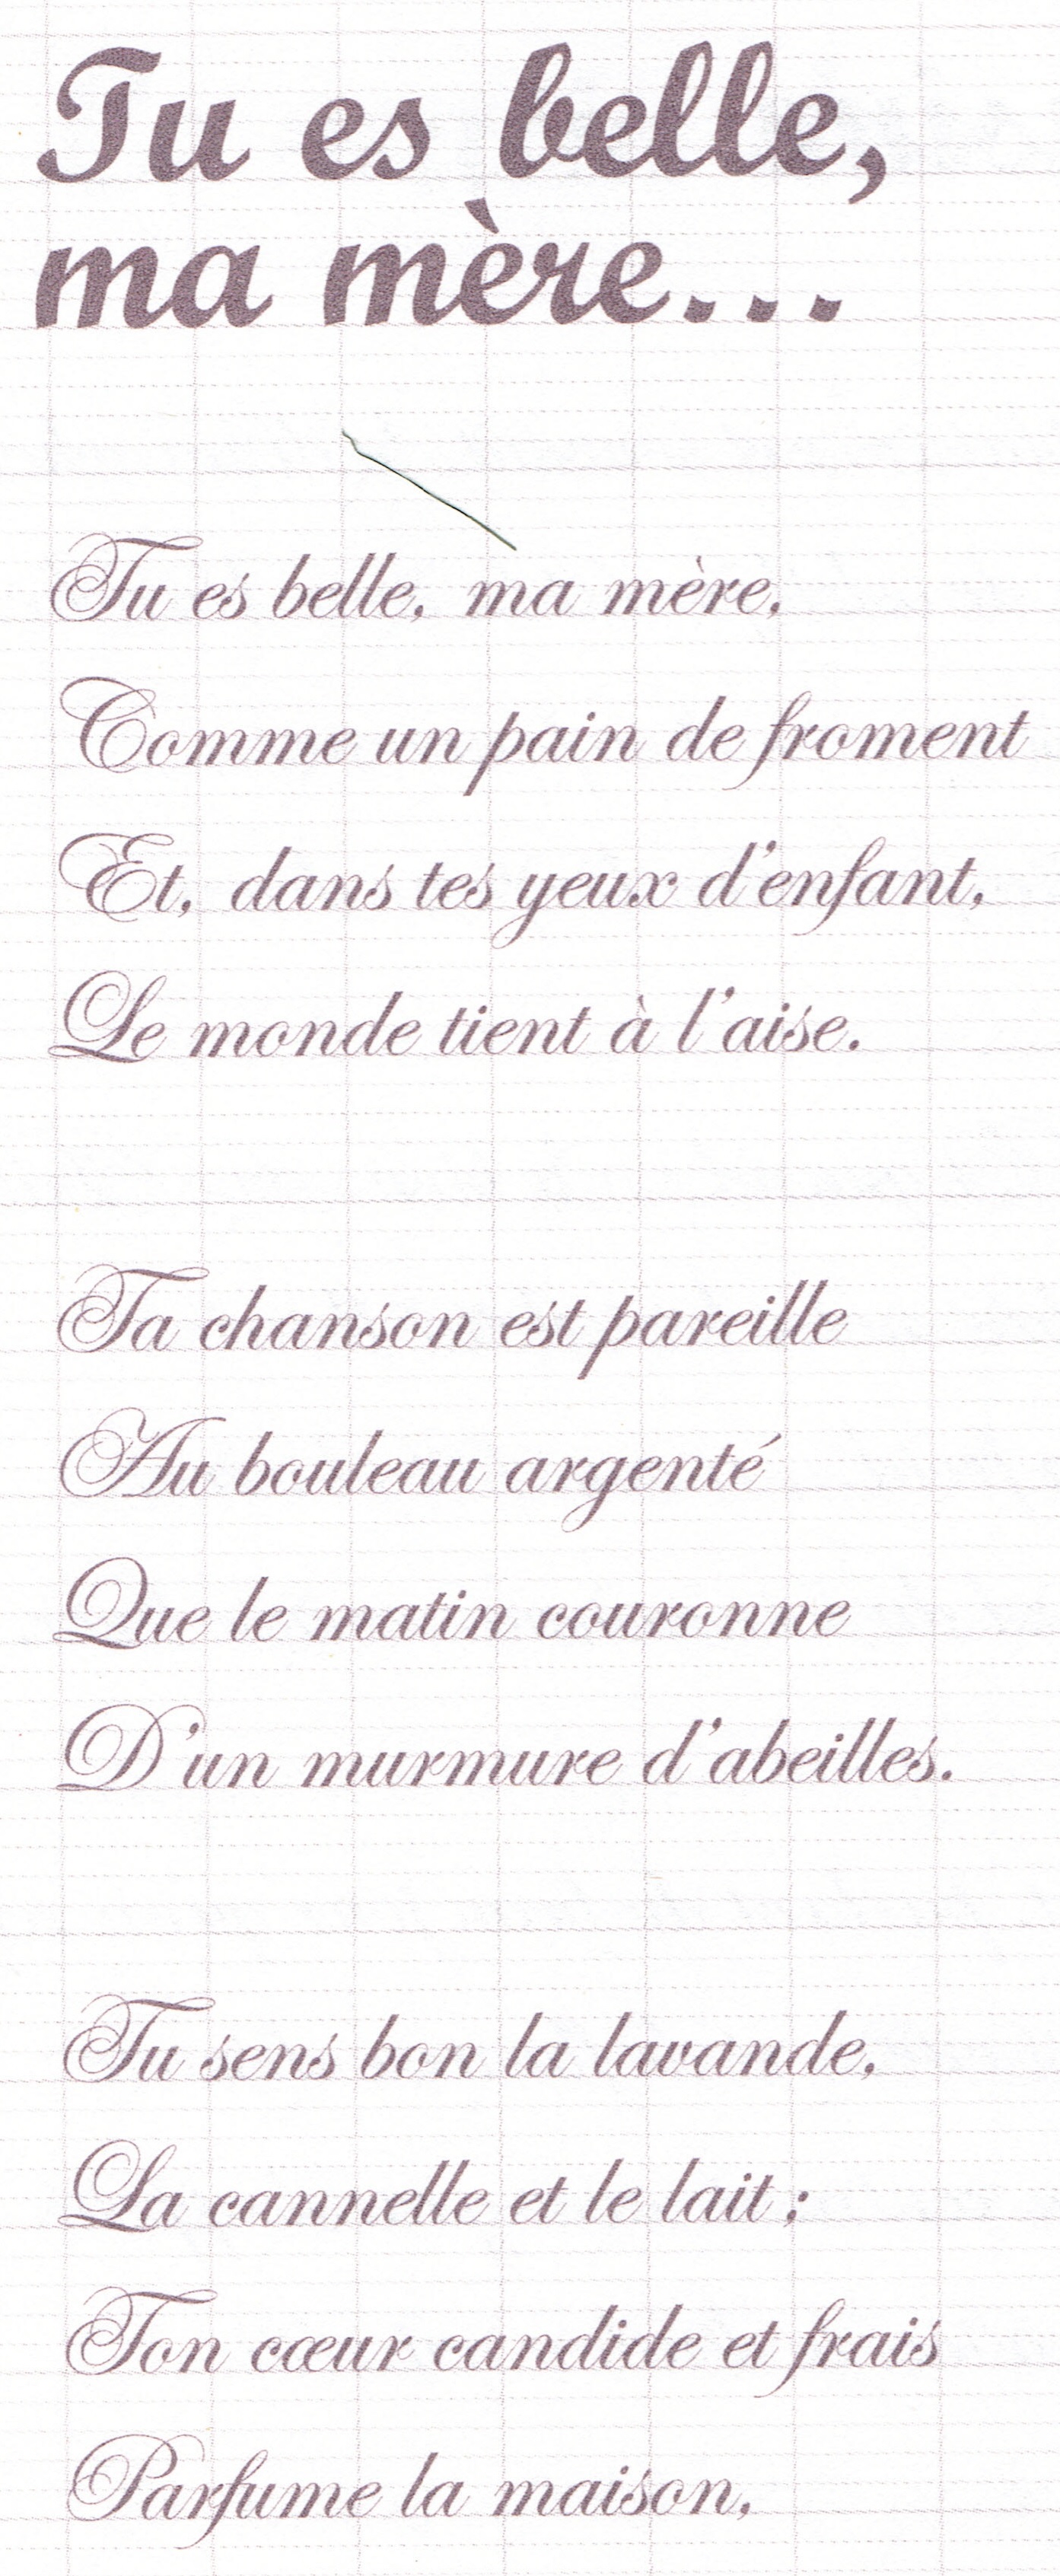 Tu es belle,
ma mère...
Tu es belle, ma mère,
Comme un pain de froment
Et, dans tes yeux d'enfant,
Le monde tient à l'aise.
Ta chanson est pareille
Au bouleau argenté
Que le matin couronne
D'un murmure d'abeilles.
Tu sens bon la lavande,
La cannelle et le lait ;
Ton cœur candide et frais
Parfume la maison,